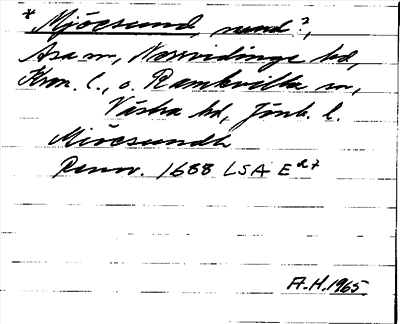 * Mjöesund, sund?,
Asa sn, Norrvidinge hd,
Kron. l., o. Ramkvilla sn,
Västra hd, Jönk. l.
Miöesundh
Renov. 1688 LSA E 27
A.H. 1965